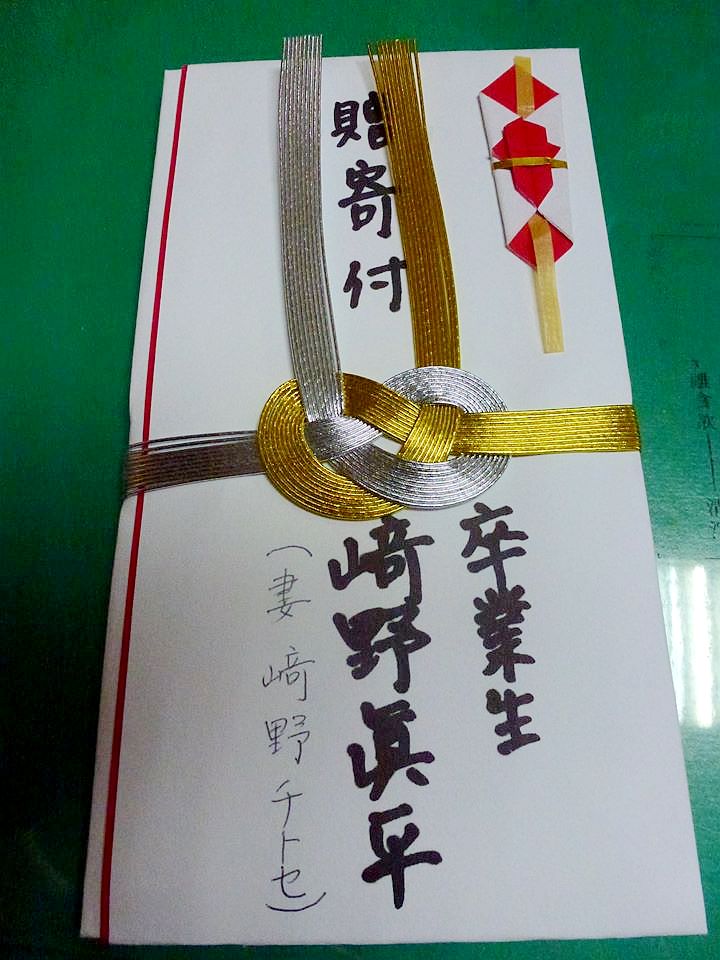 贈寄付
卒業生
﨑野眞平
(妻 﨑野チトセ)